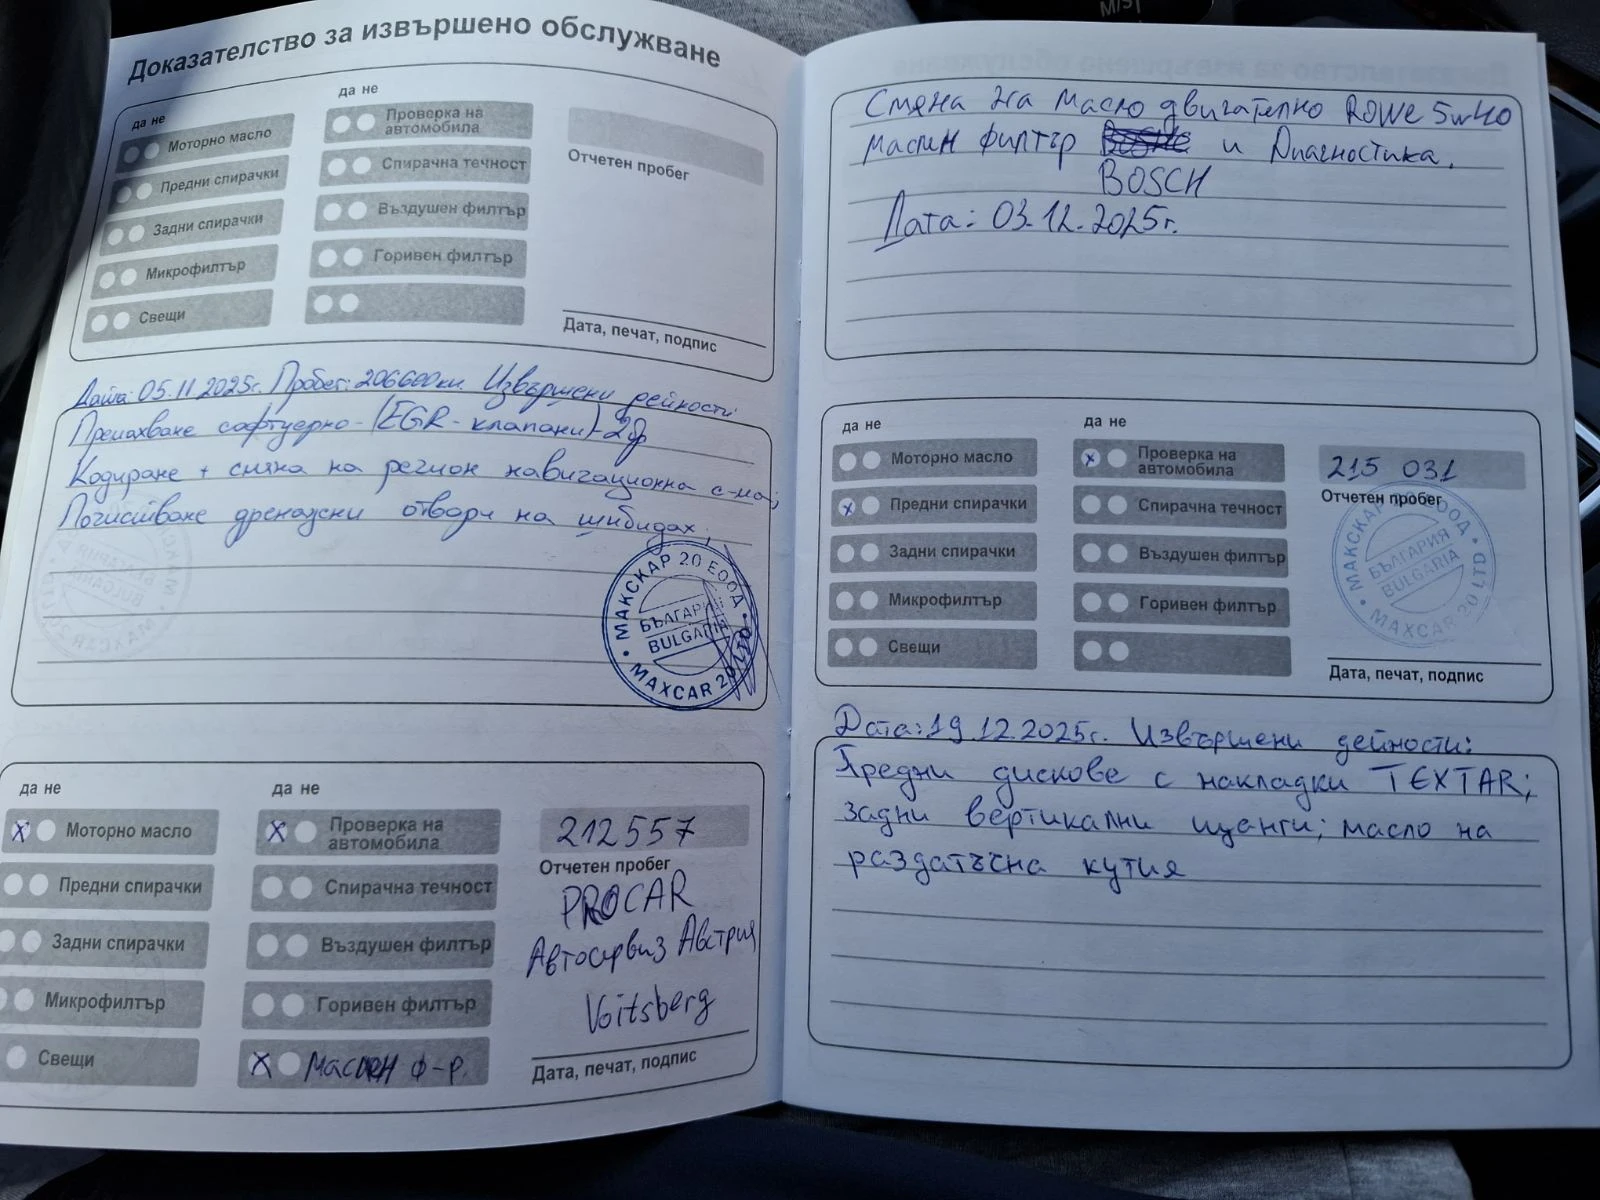 Доказателство за извършено обслужване
да не
да не
Моторно масло
Предни спирачки
Задни спирачки
Микрофилтър
Свещи
Проверка на
автомобила
Спирачна течност
Въздушен филтър
Горивен филтър
Отчетен пробег
Дата, печат, подпис
Дата: 05.11.2025г. Пробег: 206600км. Извършени дейности:
Премахване софтуерно - (EGR - клапани) - 2бр
Кодиране + смяна на регион навигационна с-ма;
Почистване дренажни отвори на шибидах;
МАКСКАР 20 ЕООД
БЪЛГАРИЯ
BULGARIA
MAXCAR 20 LTD
да не
да не
X Моторно масло
Предни спирачки
Задни спирачки
Микрофилтър
Свещи
X Проверка на
автомобила
Спирачна течност
Въздушен филтър
Горивен филтър
X Маслен ф-р.
212557
Отчетен пробег
PROCAR
Автосервиз Австрия
Voitsberg
Дата, печат, подпис
Смяна на масло двигателно ROWE 5w40
маслен филтър и Диагностика.
BOSCH
Дата: 03.12.2025г.
да не
да не
Моторно масло
x Предни спирачки
Задни спирачки
Микрофилтър
Свещи
x Проверка на
автомобила
Спирачна течност
Въздушен филтър
Горивен филтър
215 031
Отчетен пробег
МАКСКАР 20 ЕООД
БЪЛГАРИЯ
BULGARIA
MAXCAR 20 LTD
Дата, печат, подпис
Дата: 19.12.2025г. Извършени дейности:
Предни дискове с накладки TEXTAR;
задни вертикални щанги; масло на
раздатъчна кутия